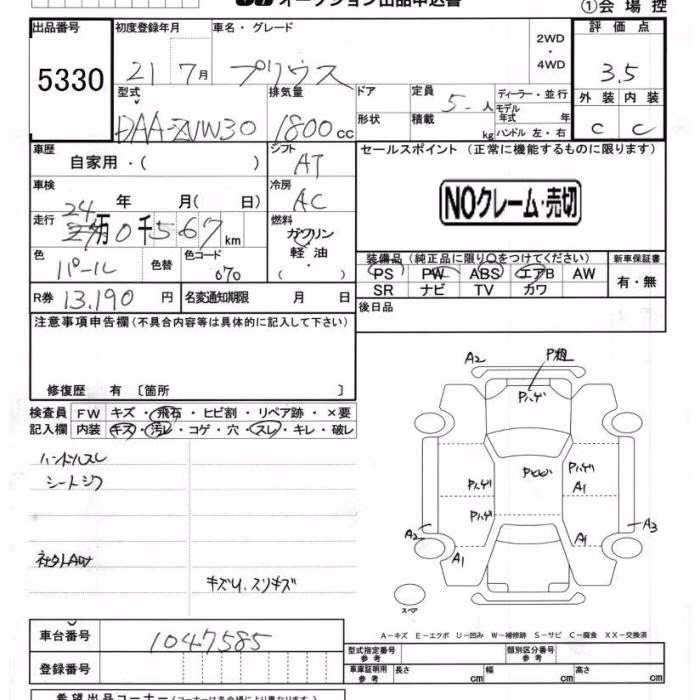 オークション出品申込書
①会場控
出品番号
5330
初度登録年月
21 7月
車名・グレード
プリウス
2WD
・
4WD
評価点
3.5
外装 内装
C C
型式
DAA-ZVW30
排気量
1800 CC
ドア
形状
定員
5 人
積載
kg
ディーラー・並行
モデル年式 年
ハンドル 左・右
車歴
自家用・( )
シフト
AT
セールスポイント (正常に機能するものに限ります)
NOクレーム・売切
車検
24 年 月( 日)
冷房
AC
走行
万 0千567 km
燃料
ガソリン
軽油
( ・ )
色
パール
色替
色コード
070
装備品 (純正品に限り○をつけてください)
新車保証書
PS PW ABS エアB AW
SR ナビ TV カワ
有・無
R券 13.190 円
名変通知期限 月 日
後日品
注意事項申告欄 (不具合内容等は具体的に記入して下さい)
修復歴 有 〔箇所 〕
検査員
記入欄
FW キズ・飛石・ヒビ割・リペア跡・×要
内装 キズ・汚レ・コゲ・穴・スレ・キレ・破レ
ハンドルスレ
シートシワ
社外AW
キズU.スリキズ
A2
Pハゲ
Pハゲ
Pハゲ
A1
Pハゲ
A2
A3
A1
A1
スペア
A-キズ E-エクボ U-凹み W-補修跡 S-サビ C-腐食 XX-交換済
車台番号
1047585
登録番号
型式指定番号
参考
類別区分番号
参考
車庫証明用
参考
長さ cm
幅 cm
高さ cm
希望出品コーナー